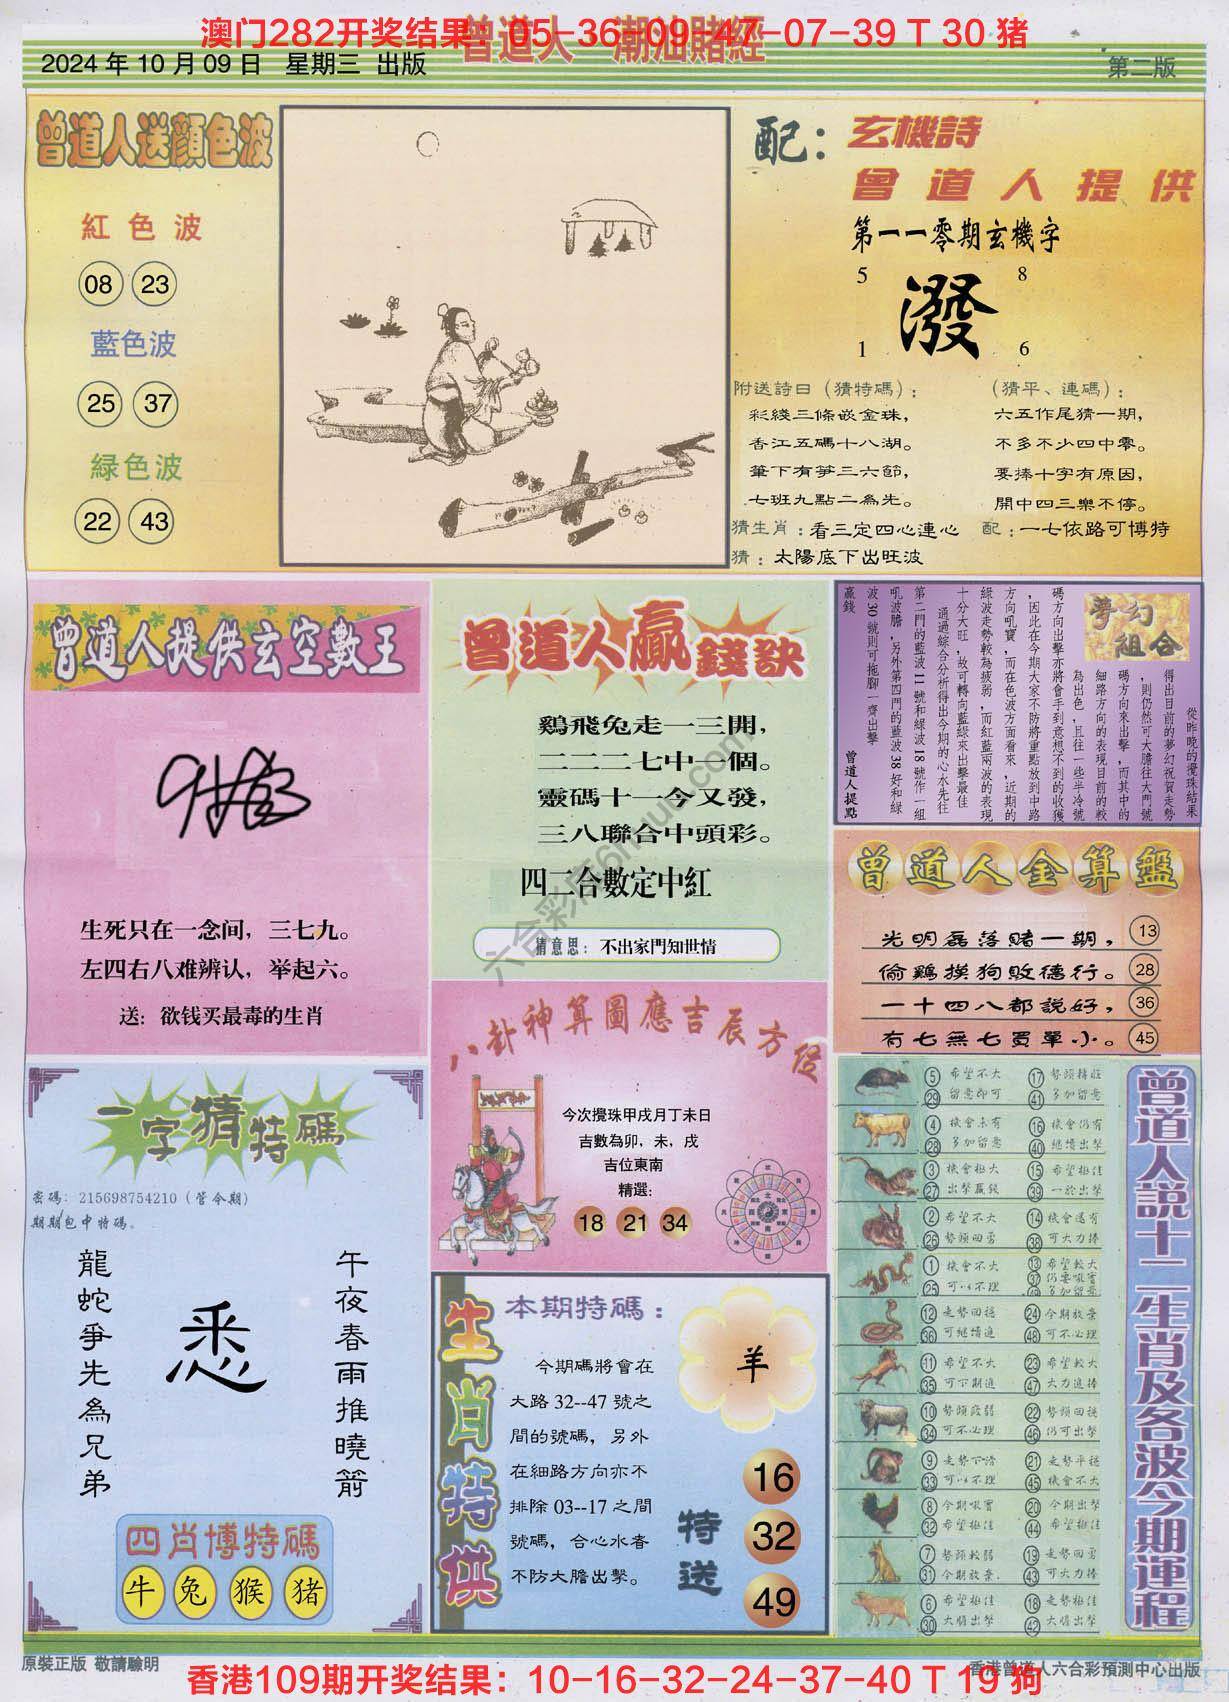 澳门282开奖结果：05-36-09-47-07-39 T 30 猪
曾道人 潮汕賭經
2024 年 10 月 09 日 星期三 出版
第二版
曾道人送顏色波
紅色波
08 23
藍色波
25 37
緑色波
22 43
配：玄機詩
曾道人提供
第一一零期玄機字
5 8
潑
1 6
附送詩曰（猜特碼）：
彩綫三條嵌金珠，
香江五碼十八湖。
筆下有笋三六節，
七班九點二為先。
（猜平、連碼）：
六五作尾猜一期，
不多不少四中零。
要捧十字有原因，
開中四三樂不停。
猜生肖：看三定四心連心
配：一七依路可博特
猜：太陽底下出旺波
曾道人提供玄空數王
生死只在一念间，三七九。
左四右八难辨认，举起六。
送：欲钱买最毒的生肖
曾道人贏錢訣
鷄飛兔走一三開，
二二二七中一個。
靈碼十一今又發，
三八聯合中頭彩。
四二合數定中紅
猜意思：不出家門知世情
夢幻組合
從昨晚的攪珠結果
得出目前的夢幻祝賀走勢
，則仍然可大膽往大門號
碼方向來出擊，而其中的
細路方向的表現目前的較
為出色，且往一些半冷號
碼方向出擊亦將會手到意想不到的收獲
，因此在今期大家不防將重點放到中路
方向吼寶，而在色波方面看來，近期的
綠波走勢較為疲弱，而紅藍兩波的表現
十分大旺，故可轉向藍綠來出擊最佳
通過綜合分析得出今期的心水先往
第二門的藍波11號和綠波18號作一組
吼波膽，另外第四門的藍波38好和綠
波30號則可拖腳一齊出擊
贏錢
曾道人提點
曾道人金算盤
光明磊落賭一期， 13
偷鷄摸狗敗德行。 28
一十四八都說好， 36
有七無七買單小。 45
八卦神算圖應吉辰方位
今次攪珠甲戌月丁未日
吉數為卯，未，戌
吉位東南
精選:
18 21 34
一字猜特碼
密碼：215698754210（管今期）
期期包中特碼。
龍蛇爭先為兄弟
悉
午夜春雨推曉箭
四肖博特碼
牛 兔 猴 猪
生肖特供
本期特碼：
今期碼將會在
大路 32--47 號之
間的號碼，另外
在細路方向亦不
排除 03--17 之間
號碼，合心水者
不防大膽出擊。
羊
特送
16
32
49
曾道人説十二生肖及各波今期運程
5 29 希望不大 留意即可 17 41 勢頭轉旺 多加留意
4 28 機會未有 多加留意 16 40 機會仍有 繼續出擊
3 27 機會極大 出擊贏錢 15 39 希望極佳 一於出擊
2 26 希望不大 勢頭回勇 14 38 機會還有 可大力捧
1 25 機會不大 可以不理 13 37 49 希望較大 仍要吼寶 多加留意
12 36 走勢回穩 可繼續追 24 48 今期放棄 可不必理
11 35 希望不大 可下期追 23 47 希望較大 大力追捧
10 34 勢頭疲弱 可不必理 22 46 勢頭回穩 仍可出擊
9 33 走勢下滑 可以不理 21 45 走勢平穩 機會不大
8 32 今期吼寶 希望極佳 20 44 今期出擊 希望極佳
7 31 勢頭較弱 今期放棄. 19 43 走勢回勇 可大力捧
6 30 希望極佳 大膽出擊 18 42 走勢極佳 大膽出擊
六合彩库6huu.com
原裝正版 敬請驗明
香港曾道人六合彩預測中心出版
香港109期开奖结果：10-16-32-24-37-40 T 19 狗